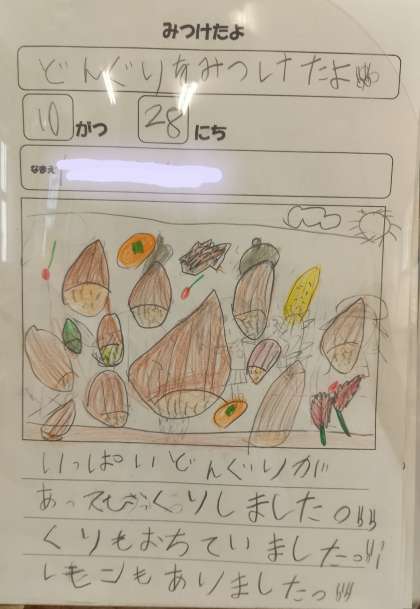 みつけたよ
どんぐりをみつけたよ!!!
10がつ 28にち
なまえ
いっぱいどんぐりが
あってびっくりしました。!!!
くりもおちていました。!!!
レモンもありました。!!!